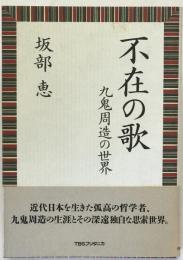 不在の歌
九鬼周造の世界
坂部 恵
近代日本を生きた孤高の哲学者、
九鬼周造の生涯とその深遠独自な思索世界。
TBSブリタニカ